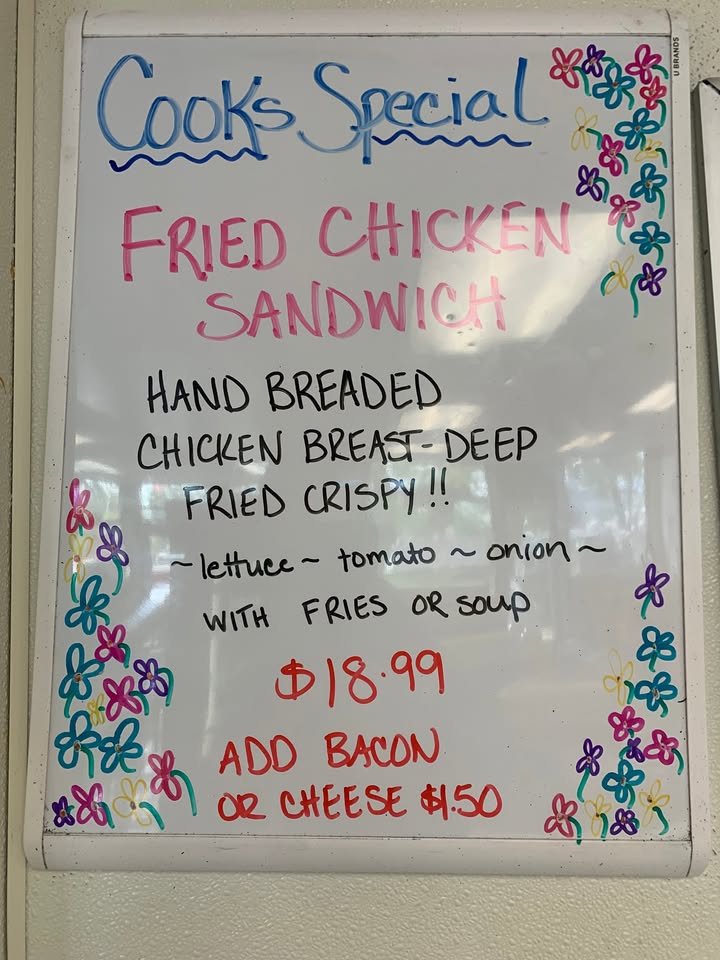 Cook's Special
FRIED CHICKEN
SANDWICH
HAND BREADED
CHICKEN BREAST-DEEP
FRIED CRISPY!!
~lettuce~ tomato ~ onion~
WITH FRIES OR soup
$18.99
ADD BACON
OR CHEESE $1.50
U BRANDS